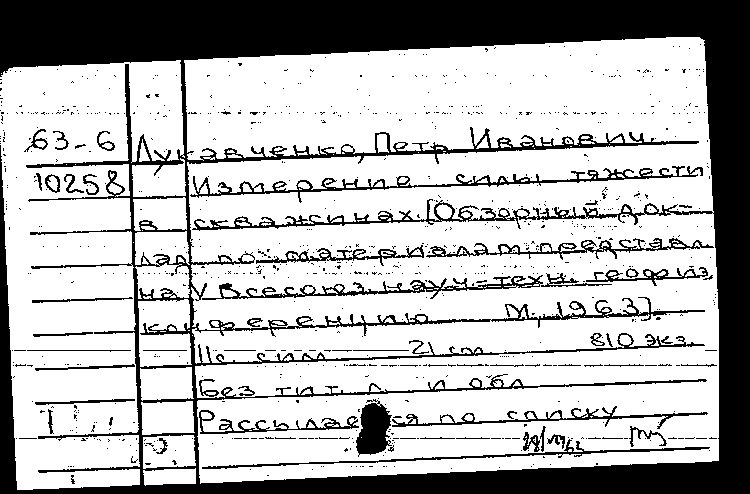 63-6 Лукавченко, Петр Иванович.
10258 Измерение силы тяжести
в скважинах. [Обзорный док-
лад по материалам, представл.
на V Всесоюз. науч.-техн. геофиз.
конференцию М., 1963].
11с. с илл 21 см 810 экз.
Без тит. л. и обл
Рассылается по списку